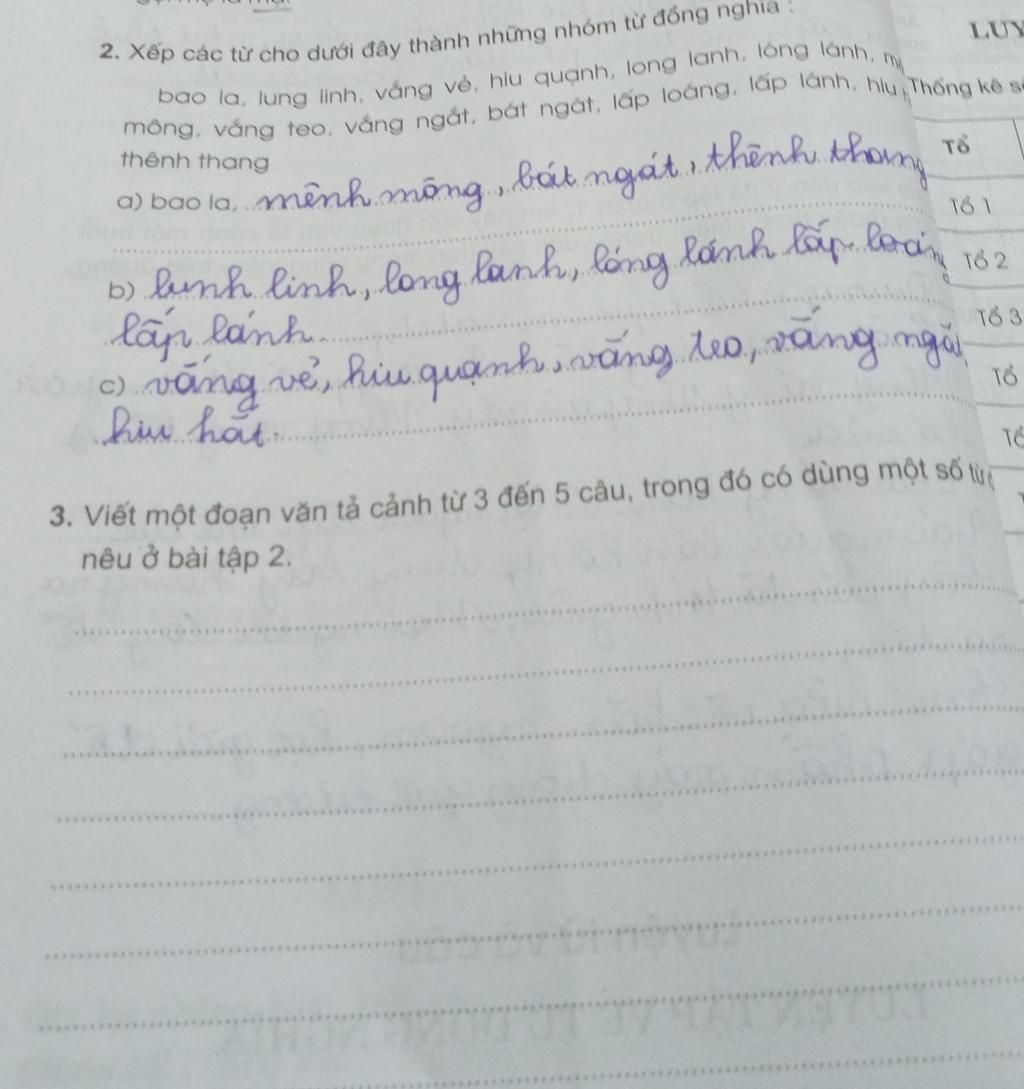 2. Xếp các từ cho dưới đây thành những nhóm từ đồng nghĩa :
LUY
bao la, lung linh, vắng vẻ, hiu quạnh, long lanh, lóng lánh,
mông, vắng teo, vắng ngắt, bát ngát, lấp loáng, lấp lánh, hiu
Thống kê s
thênh thang
TỔ
a) bao la, mênh mông, bát ngát, thênh thang
Tổ 1
b) lunh linh, long lanh, lóng lánh lấp loáng
Tổ 2
lấp lánh.
Tổ 3
c) vắng vẻ, hiu quạnh, vắng teo, vắng ngắt
Tổ
hiu hắt.
Tổ
3. Viết một đoạn văn tả cảnh từ 3 đến 5 câu, trong đó có dùng một số từ
nêu ở bài tập 2.